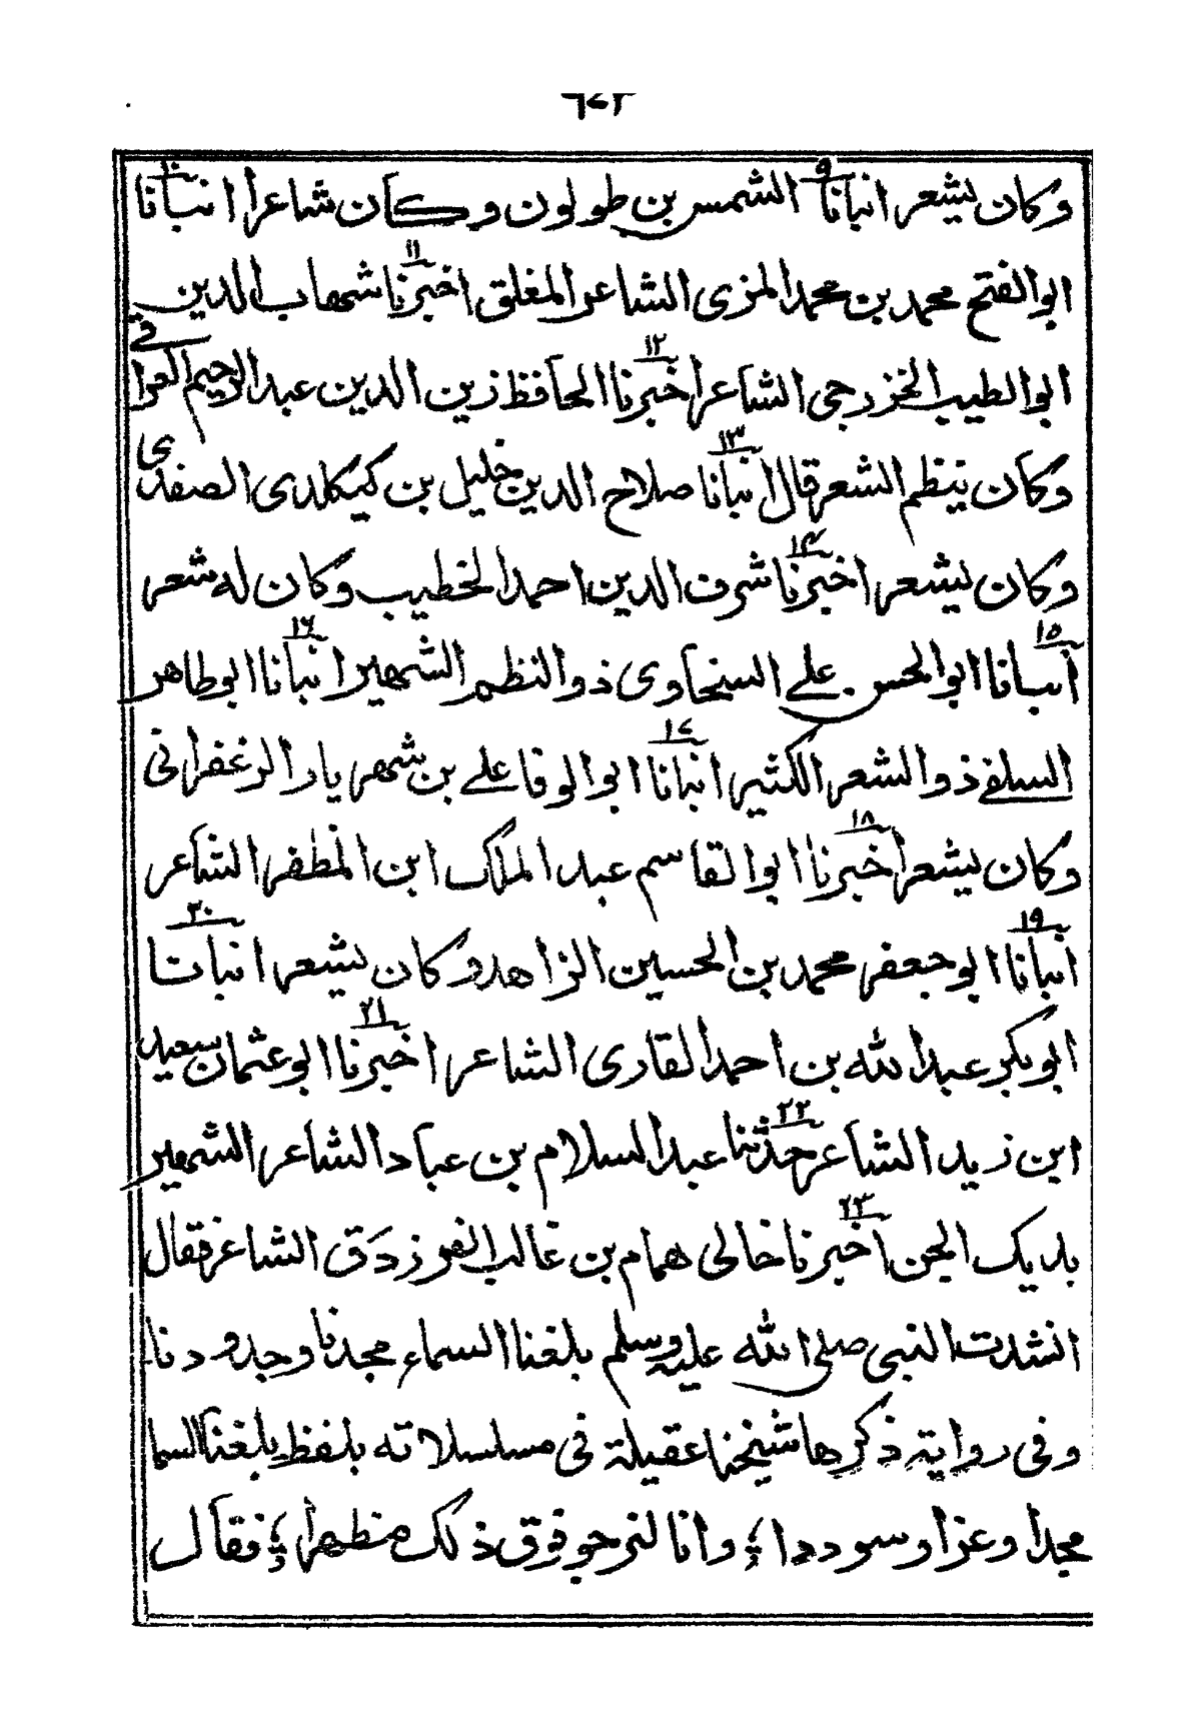 ٦٤٣
وكان يشعر انبانا ٩ الشمس بن طولون وكان شاعرا انبانا ١٠
ابو الفتح محمد بن محمد المزى الشاعر المغلق اخبرنا ١١ شهاب الدين
ابو الطيب الخزرجى الشاعر اخبرنا ١٢ الحافظ زين الدين عبد الرحيم العراقى
وكان ينظم الشعر قال انبانا ١٣ صلاح الدين خليل بن كيكلدى الصفدى
وكان يشعر اخبرنا ١٤ شرف الدين احمد الخطيب وكان له شعر
انبانا ١٥ ابو الحسن على السخاوى ذو النظم الشهير انبانا ١٦ ابو طاهر
السلفے ذو الشعر الكثير انبانا ١٧ ابو الوفا علے بن شهر يار الزغفرانى
وكان يشعر اخبرنا ١٨ ابو القاسم عبد الملك ابن المظفر الشاعر
انبانا ١٩ ابو جعفر محمد بن الحسين الزاهد وكان يشعر انبانا ٢٠
ابو بكر عبد الله بن احمد القارى الشاعر اخبرنا ٢١ ابو عثمان سعيد
ابن زيد الشاعر حدثنا ٢٢ عبد السلام بن عباد الشاعر الشهير
بديك الجن اخبرنا ٢٣ خالى همام بن غالب الفرزدق الشاعر فقال
انشدت النبى صلى الله عليه وسلم بلغنا السماء مجدنا وجدودنا
وفى رواية ذكرها شيخنا عقيلة فى مسلسلاته بلفظ بلغنا السما
مجدا وعزا وسوددا ؛ وانا لنرجو فوق ذلك منظهرا ؛ فقال